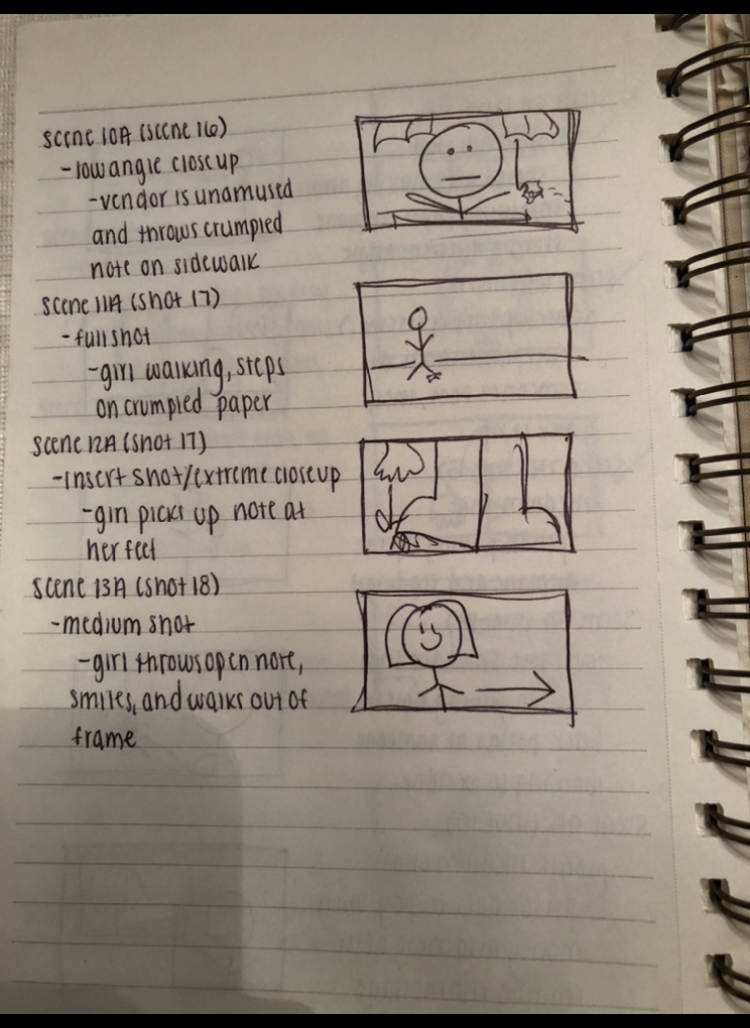 scene 10A (scene 16)
-low angle close up
-vendor is unamused
and throws crumpled
note on sidewalk
scene 11A (shot 17)
-full shot
-girl walking, steps
on crumpled paper
scene 12A (shot 17)
-insert shot/extreme close up
-girl picks up note at
her feet
scene 13A (shot 18)
-medium shot
-girl throws open note,
smiles, and walks out of
frame